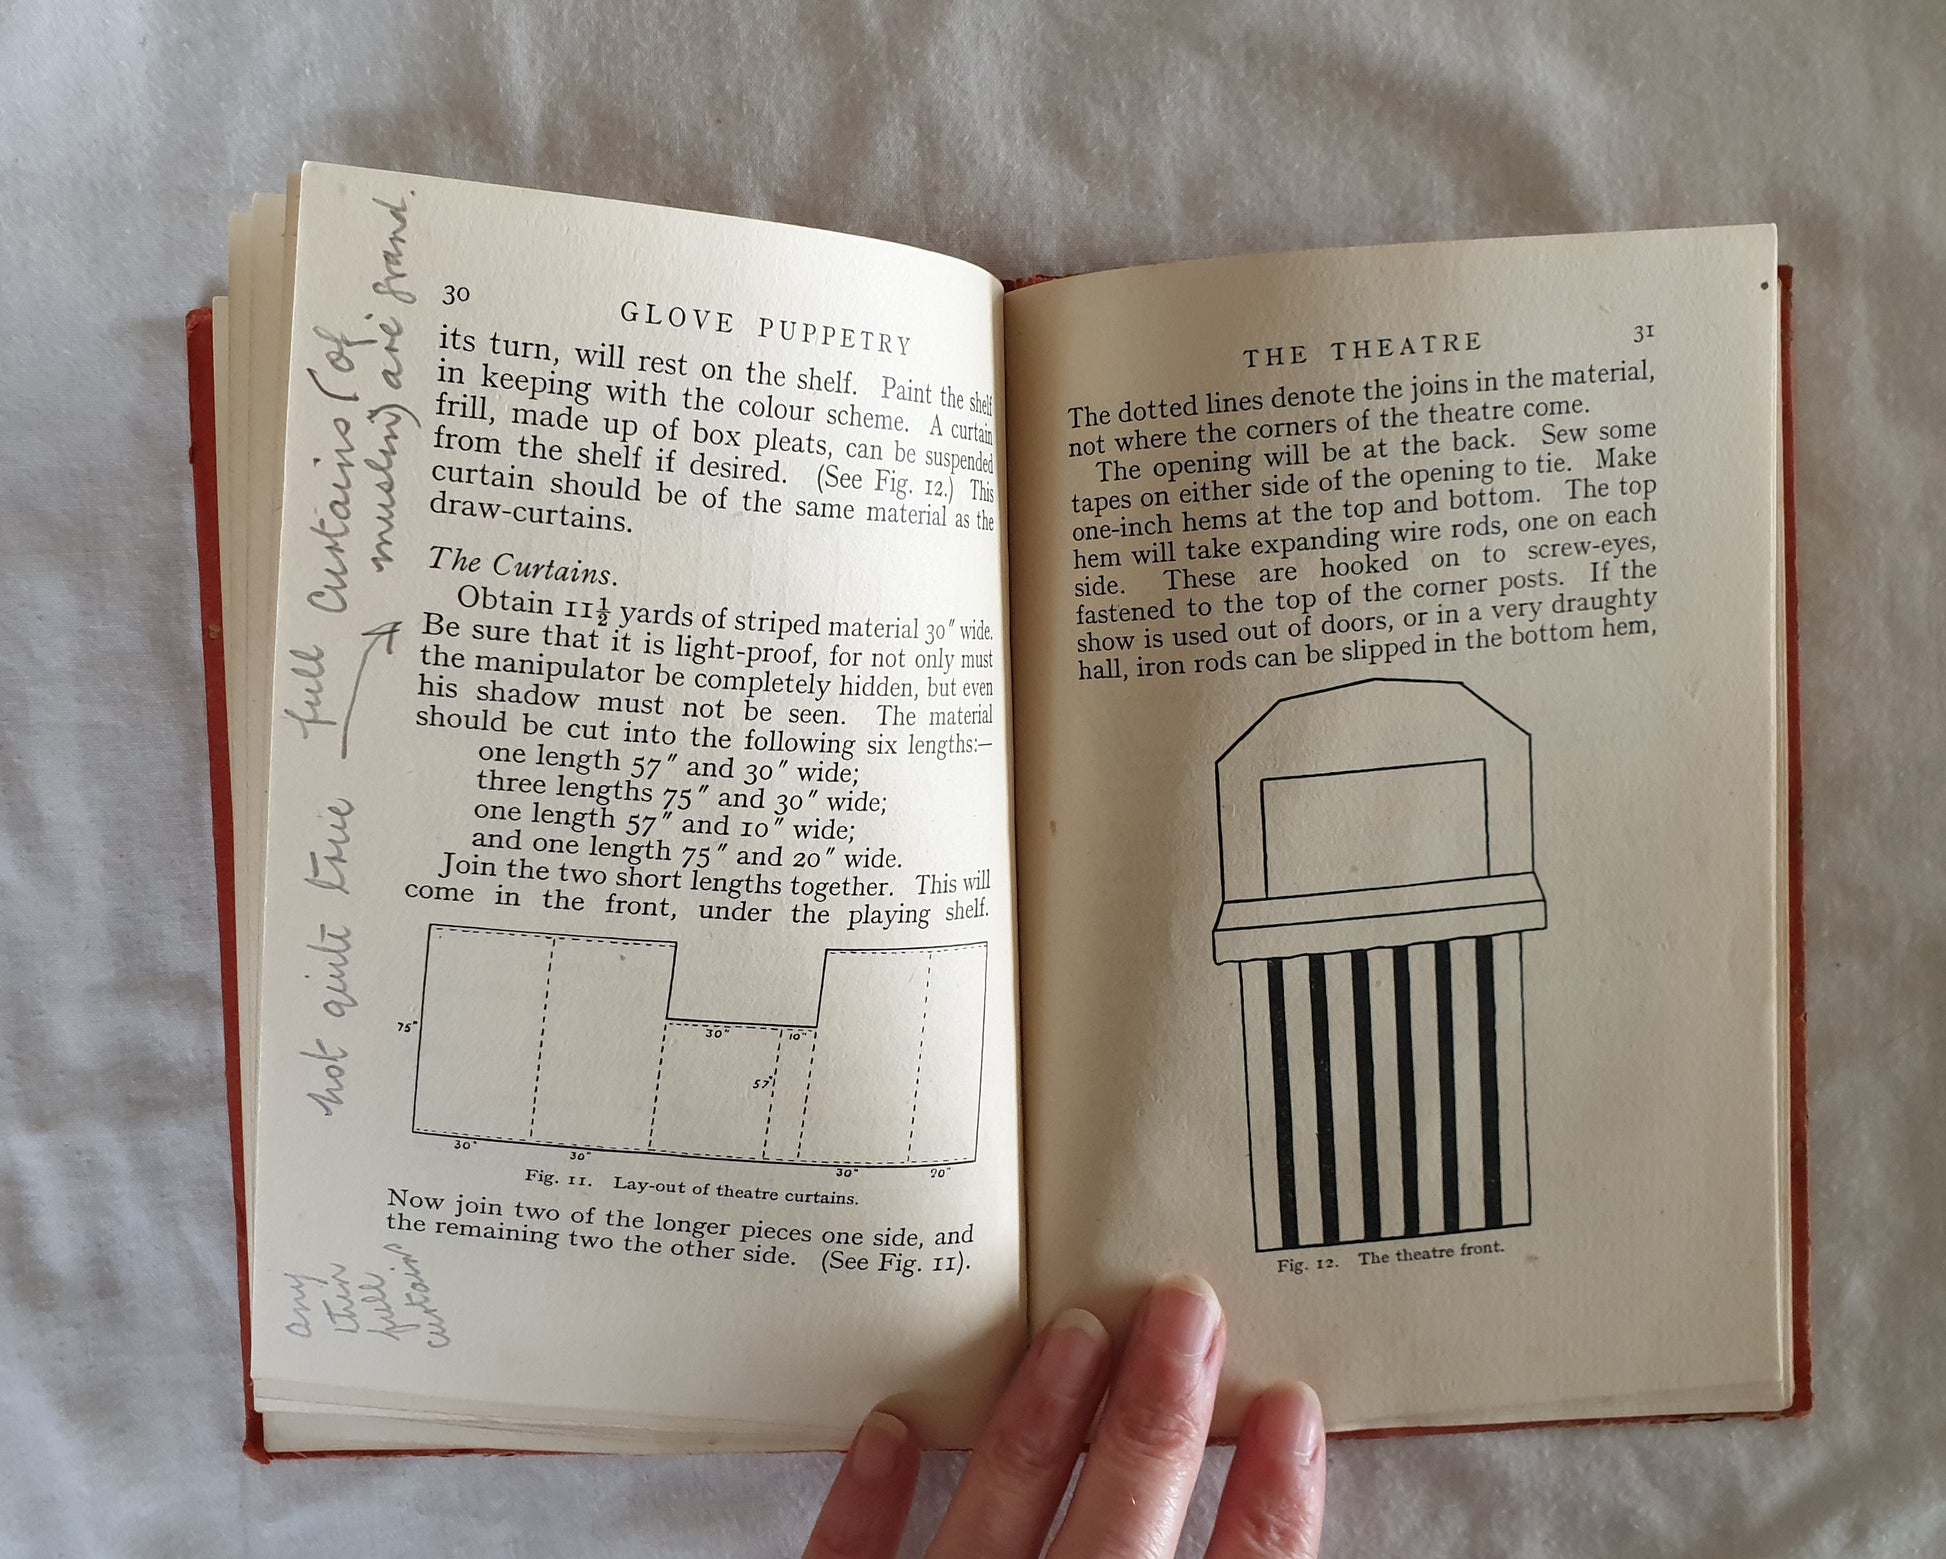 30
GLOVE PUPPETRY
its turn, will rest on the shelf. Paint the shelf
in keeping with the colour scheme. A curtain
frill, made up of box pleats, can be suspended
from the shelf if desired. (See Fig. 12.) This
curtain should be of the same material as the
draw-curtains.
The Curtains.
Obtain 11½ yards of striped material 30″ wide.
Be sure that it is light-proof, for not only must
the manipulator be completely hidden, but even
his shadow must not be seen. The material
should be cut into the following six lengths:—
one length 57″ and 30″ wide;
three lengths 75″ and 30″ wide;
one length 57″ and 10″ wide;
and one length 75″ and 20″ wide.
Join the two short lengths together. This will
come in the front, under the playing shelf.
75"
30"
10"
57"
30"
30"
30"
20"
Fig. 11. Lay-out of theatre curtains.
Now join two of the longer pieces one side, and
the remaining two the other side. (See Fig. 11).
not quite true — full curtains (of
muslin) are grand.
any
thin
full
curtain
THE THEATRE
31
The dotted lines denote the joins in the material,
not where the corners of the theatre come.
The opening will be at the back. Sew some
tapes on either side of the opening to tie. Make
one-inch hems at the top and bottom. The top
hem will take expanding wire rods, one on each
side. These are hooked on to screw-eyes,
fastened to the top of the corner posts. If the
show is used out of doors, or in a very draughty
hall, iron rods can be slipped in the bottom hem,
Fig. 12. The theatre front.